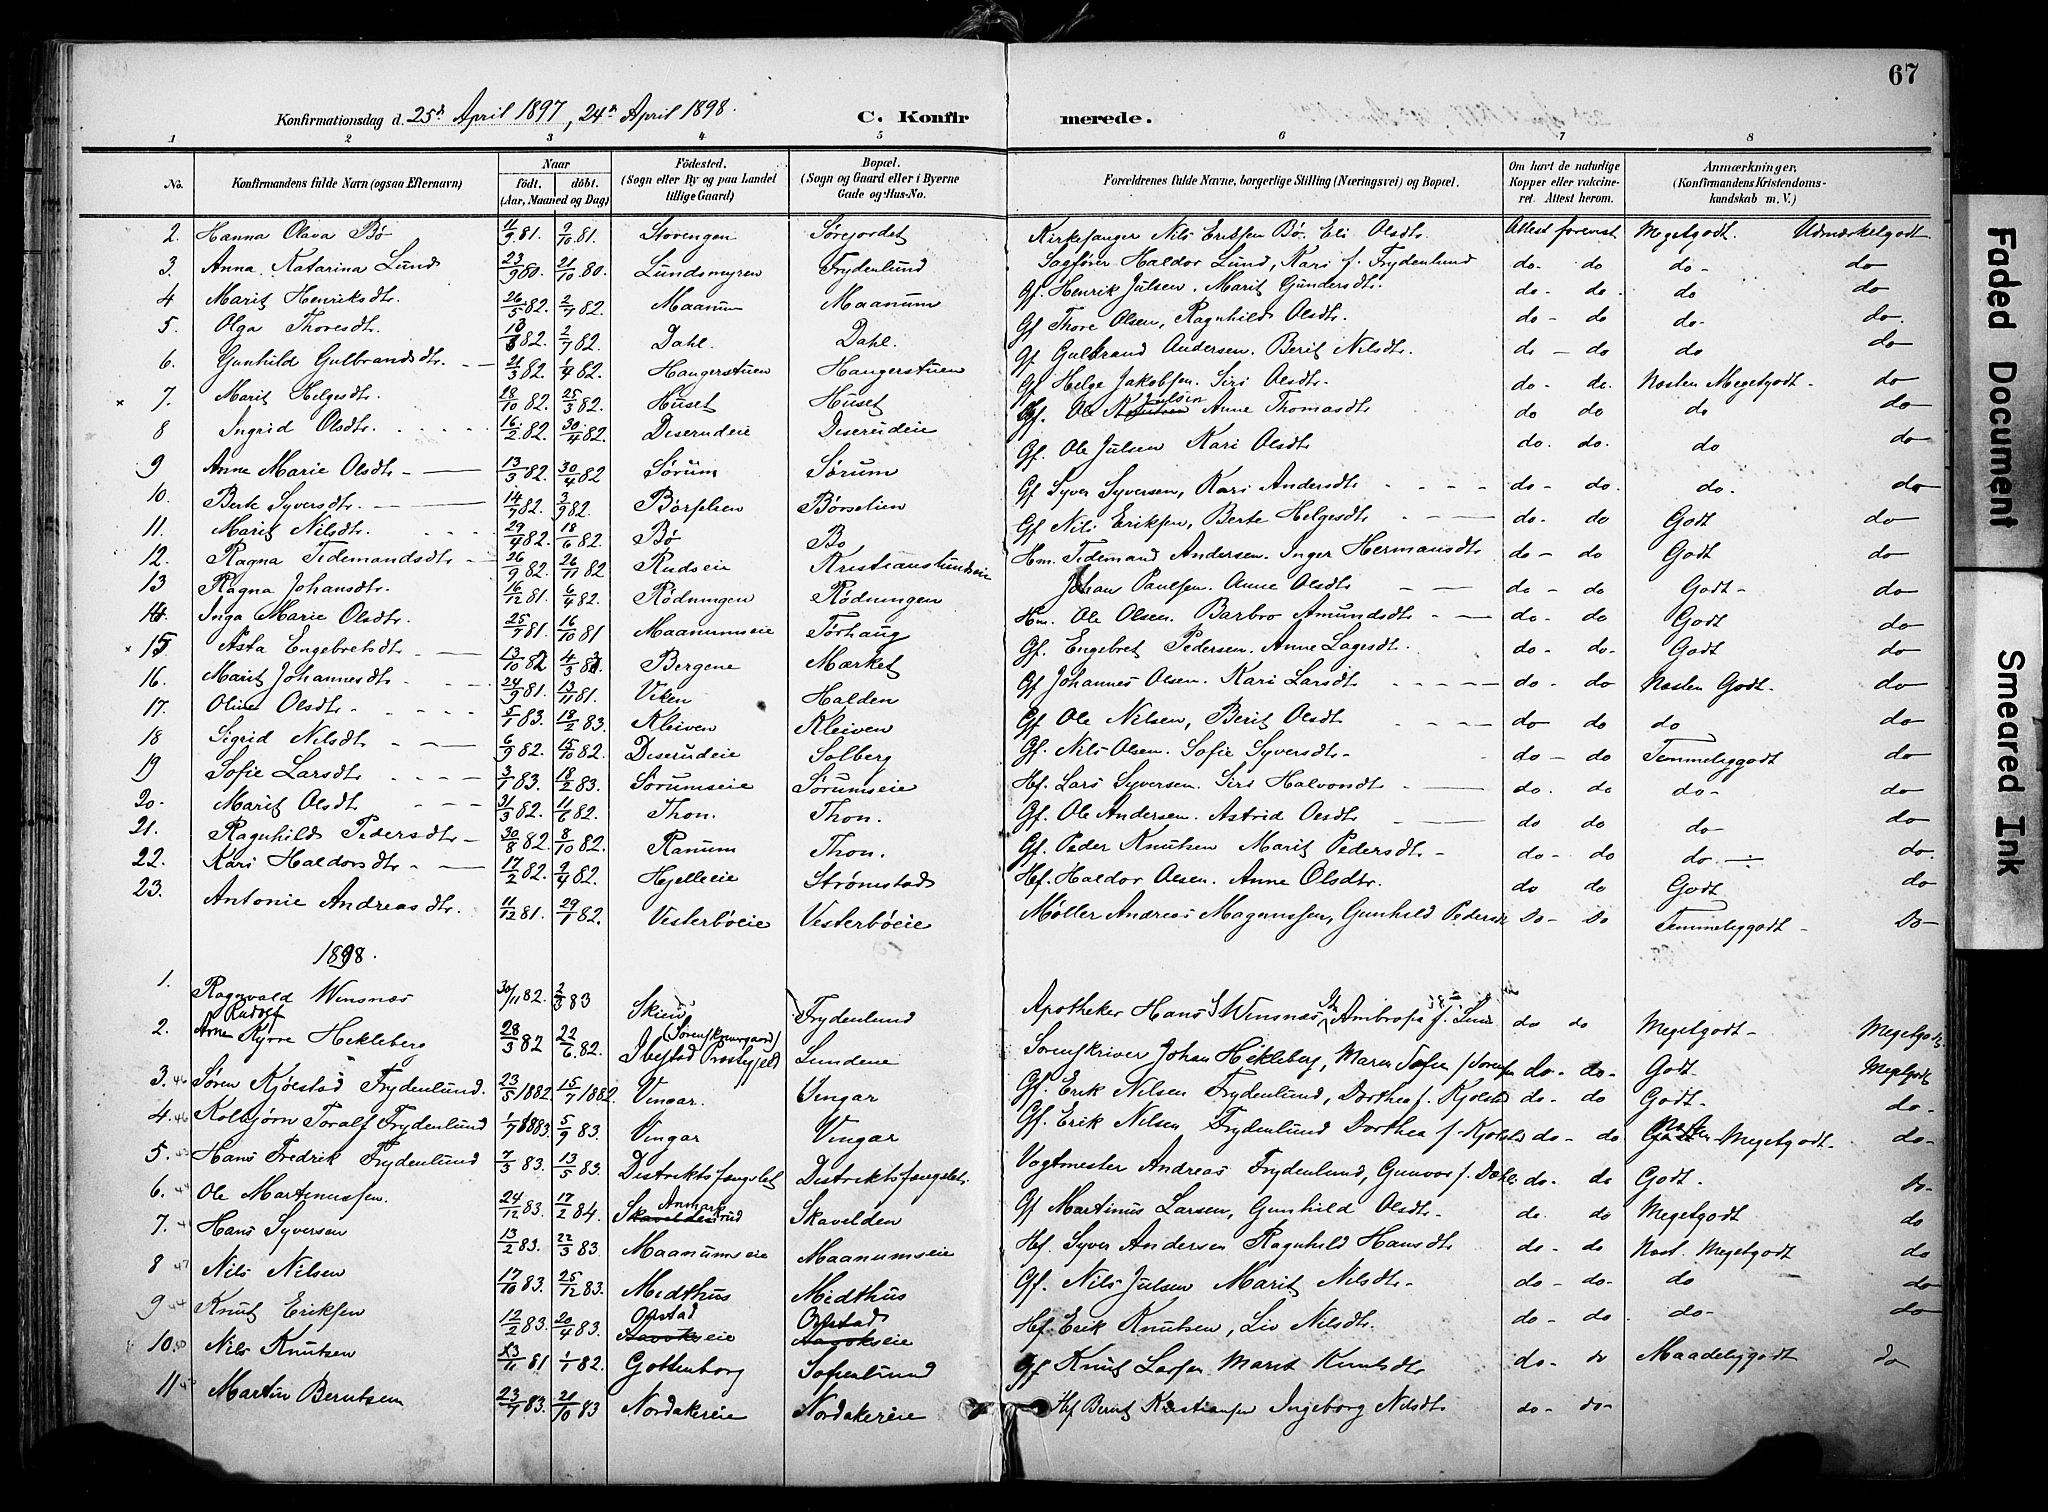 67
Konfirmationsdag d. 25d April 1897, 24d April 1898.
C. Konfirmerede.
1 2 3 4 5 6 7 8
No.
Konfirmandens fulde Navn (ogsaa Efternavn)
Naar
födt. döbt.
(Aar, Maaned og Dag)
Födested.
(Sogn eller By og paa Landet
tillige Gaard)
Bopæl.
(Sogn og Gaard eller i Byerne
Gade og Hus-No.
Forældrenes fulde Navne, borgerlige Stilling (Næringsvei) og Bopæl.
Om havt de naturlige
Kopper eller vakcine-
ret. Attest herom.
Anmærkninger,
(Konfirmandens Kristendoms-
kundskab m. V.)
2. Hanna Olava Bø 11/9 81. 9/10 81. Storengen Sørejordet Kirkesanger Nils Eriksen Bø. Eli Olsdtr. Attest forevist Megetgodt. Udmærketgodt
3. Anna Katarina Lund 23/9 80. 21/10 80. Lundsmyren Frydenlund Sagfører Haldor Lund, Kari f. Frydenlund do- do do- do
4 Marit Henriksdtr. 26/5 82. 2/7 82. Maanum Maanum Gf. Henrik Julsen. Marit Gundersdtr. do- do. do do
5. Olga Thoresdtr. 82. 2/7 82. Dahl. Dahl. Gf Thore Olsen, Ragnhild Olsdtr. do- do do- do.
6. Gunhild Gulbrandsdtr. 21/3 82. 1/4 82. Haugerstuen Haugerstuen Gf Gulbrand Andersen. Berit Nilsdtr. do - do do do
× 7. Marit Helgesdtr. 18/10 82. 25/3 82. Huset Huset Gf. Helge Jakobsen. Siri Olsdtr- do- do. Næsten Megetgodt- do
8 Ingrid Olsdtr. 16/2 82. 30/4 82. Deserudeie Deserudeie Gf. Ole Knutsen Julsen Anne Thomasdtr do do do do
9 Anne Marie Olsdtr- 13/3 82. 30/4 82 Sørum Sørum Gf. Ole Julsen Kari Olsdtr do. do. do do
10. Berte Syversdtr. 14/7 82. 3/9 82. Børslien Børselien Gf Syver Syversen, Kari Andersdtr do- do. do. do
11. Marit Nilsdtr. 29/4 82. 18/6 82. Bø Bø Gf Nils Eriksen, Berte Helgesdtr do- do Godt do
12. Ragna Tidemandsdtr 26/9 82. 26/11 82 Rudseie Kristianslundseie Hm. Tidemand Andersen. Inger Hermansdtr do- do Godt do
13 Ragna Johansdtr. 16/12 81. 6/4 82. Rødningen Rødningen Johan Paulsen. Anne Olsdtr do- do Godt- do
14. Inga Marie Olsdtr. 25/7 81. 16/10 81 Maanumseie Torhaug Hm. Ole Olsen. Barbro Amundsdtr do- do. Godt do
× 15 Asta Engebretsdtr 13/10 82 4/3 83. Bergene Mærket Gf. Engebret Pedersen. Anne Lagesdtr. do- do- Godt do
16. Marit Johannesdtr 24/9 81. 13/11 81. Viken Halden Gf Johannes Olsen. Kari Larsdtr do- do Næsten Godt. do
17. Oline Olsdtr 5/1 83. 18/2 83. Kleiven Kleiven Gf Ole Nilsen, Berit Olsdtr do do do do
18 Sigrid Nilsdtr 6/9 82. 15/10 82. Deserudeie Solberg Gf. Nils Olsen. Sofie Syversdtr- do- do Temmeliggodt do
19 Sofie Larsdtr 3/1 83. 18/2 83. Sørumseie Sørumseie Hf. Lars Syversen. Siri Halvorsdtr do. do do- do
20. Marit Olsdtr 31/3 82. 11/6 82. Thon. Thon. Gf. Ole Andersen. Astrid Olsdtr do do do do
21. Ragnhild Pedersdtr 30/8 82. 8/10 82. Ranum Thon. Gf. Peder Knutsen Marit Pedersdtr- do- do do. do.
22. Kari Haldorsdtr 17/2 82. 9/4 82. Hjelleeie Strømstad Hf. Haldor Olsen. Anne Olsdtr. do do Godt do
23. Antonie Andreasdtr. 11/12 81. 29/1 82. Vesterbøeie Vesterbøeie Møller Andreas Magnussen, Gunhild Pedersdtr Do- Do Temmeliggodt- Do-
1898.
1. Ragnvald Winsnæs 30/11 82. 2/3 83 Skien Frydenlund Apotheker Hans J Winsnæs, Ida Ambrosia f. Lund do do Megetgodt- Megetgodt
2. Arne Rudolf Kyrre Hekleberg 28/3 82 22/6 82. Ibestad Præstegjeld (Sørenskrivergaard) Lundene Sorenskriver Johan Hekleberg, Maren Sofie f Sørensen do- do- Godt- Megetgodt
3. Søren Kjølstad Frydenlund. 23/5 1882. 15/7 1882. Vingar. Vingar Gf. Erik Nilsen Frydenlund, Dorthea f. Kjølstad do- do Godt- do-
4. Kolbjørn Toralf Frydenlund 1/7 1883. 5/9 83. Vingar Vingar Gf. Erik Nilsen Frydenlund Dorthea f. Kjølstad do- do. Næsten Megetgodt- do-
5. Hans Fredrik Frydenlund 7/3 83. 13/5 83. Distriktsfængslet Distriktsfængslet. Vagtmester Andreas Frydenlund, Gunvor f. Dæhli do- do Godt. do-
6. Ole Martinussen. 24/12 83. 17/2 84. Skavelden Anmarkrud Skavelden Gf Martinus Larsen, Gunhild Olsdtr- do. do Megetgodt do
7. Hans Syversen 13/2 83. 22/3 83. Maanumseie Maanumseie Hf. Syver Andersen Ragnhild Hansdtr do- do Næst. Megetgodt do
8 Nils Nilsen 17/10 83. 25/12 83. Midthus Midthus Gf. Nils Julsen Marit Nilsdtr- do- do- do do
9 Knut Eriksen 12/2 83. 20/4 83. Opstad Opstad Hf. Erik Knutsen, Liv Nilsdtr. do- do. do- do
10. Nils Knutsen 13/11 81 1/1 82. Gottenborg Sofielund Gf Knut Larsen Marit Knutsdtr do- do Maadeliggodt do
11 Martin Berntsen 23/7 83. 21/10 83 Nordakereie Nordakereie Hf Bernt Kristiansen Ingeborg Nilsdtr do- do-
Faded Document
Smeared Ink